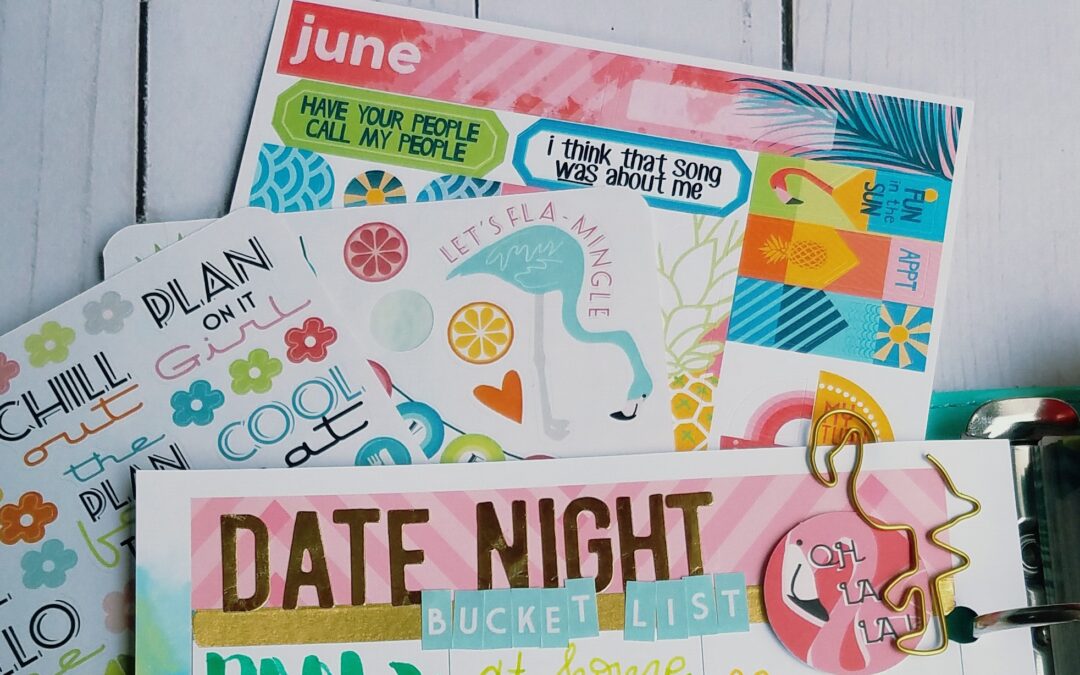 june
HAVE YOUR PEOPLE
CALL MY PEOPLE
i think that song
was about me
FUN
in the
SUN
APPT
LET'S FLA-MINGLE
PLAN
ON IT
Girl
CHILL
out
the
PLAN
COOL
DATE NIGHT
BUCKET LIST
OH
LA
LA
at home